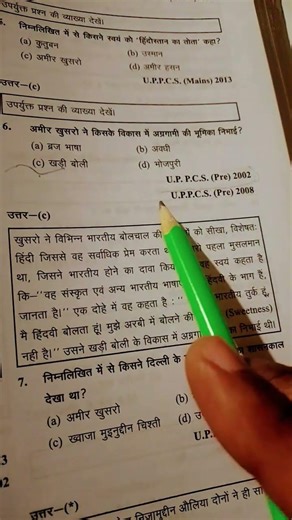 उपर्युक्त प्रश्न की व्याख्या देखें।
निम्नलिखित में से किसने स्वयं को 'हिंदोस्तान का तोता' कहा?
(a) कुतुबन (b) उस्मान
(c) अमीर खुसरो (d) अमीर हसन
U.P.P.C.S. (Mains) 2013
उत्तर–(c)
उपर्युक्त प्रश्न की व्याख्या देखें।
6. अमीर खुसरो ने किसके विकास में अग्रगामी की भूमिका निभाई?
(a) ब्रज भाषा (b) अवधी
(c) खड़ी बोली (d) भोजपुरी
U.P. P.C.S. (Pre) 2002
U.P.P.C.S. (Pre) 2008
उत्तर–(c)
खुसरो ने विभिन्न भारतीय बोलचाल की को सीखा, विशेषतः
हिंदी जिससे वह सर्वाधिक प्रेम करता पहला मुसलमान
था, जिसने भारतीय होने का दावा किया वह स्वयं कहता है
कि–''वह संस्कृत एवं अन्य भारतीय भाषा के भाग हैं,
जानता है।'' एक दोहे में वह कहता है : '' भारतीय तुर्क हूँ,
मै हिंदवी बोलता हूं! मुझे अरबी में बोलने की (Sweetness)
नही है।'' उसने खड़ी बोली के विकास में निभाई थी।
7. निम्नलिखित में से किसने दिल्ली के शासनकाल
देखा था?
(a) अमीर खुसरो (b)
(c) ख्वाजा मुइनुद्दीन चिश्ती (d)
U.P.
उत्तर–(*)
निज़ामुद्दीन औलिया दोनों ने ही